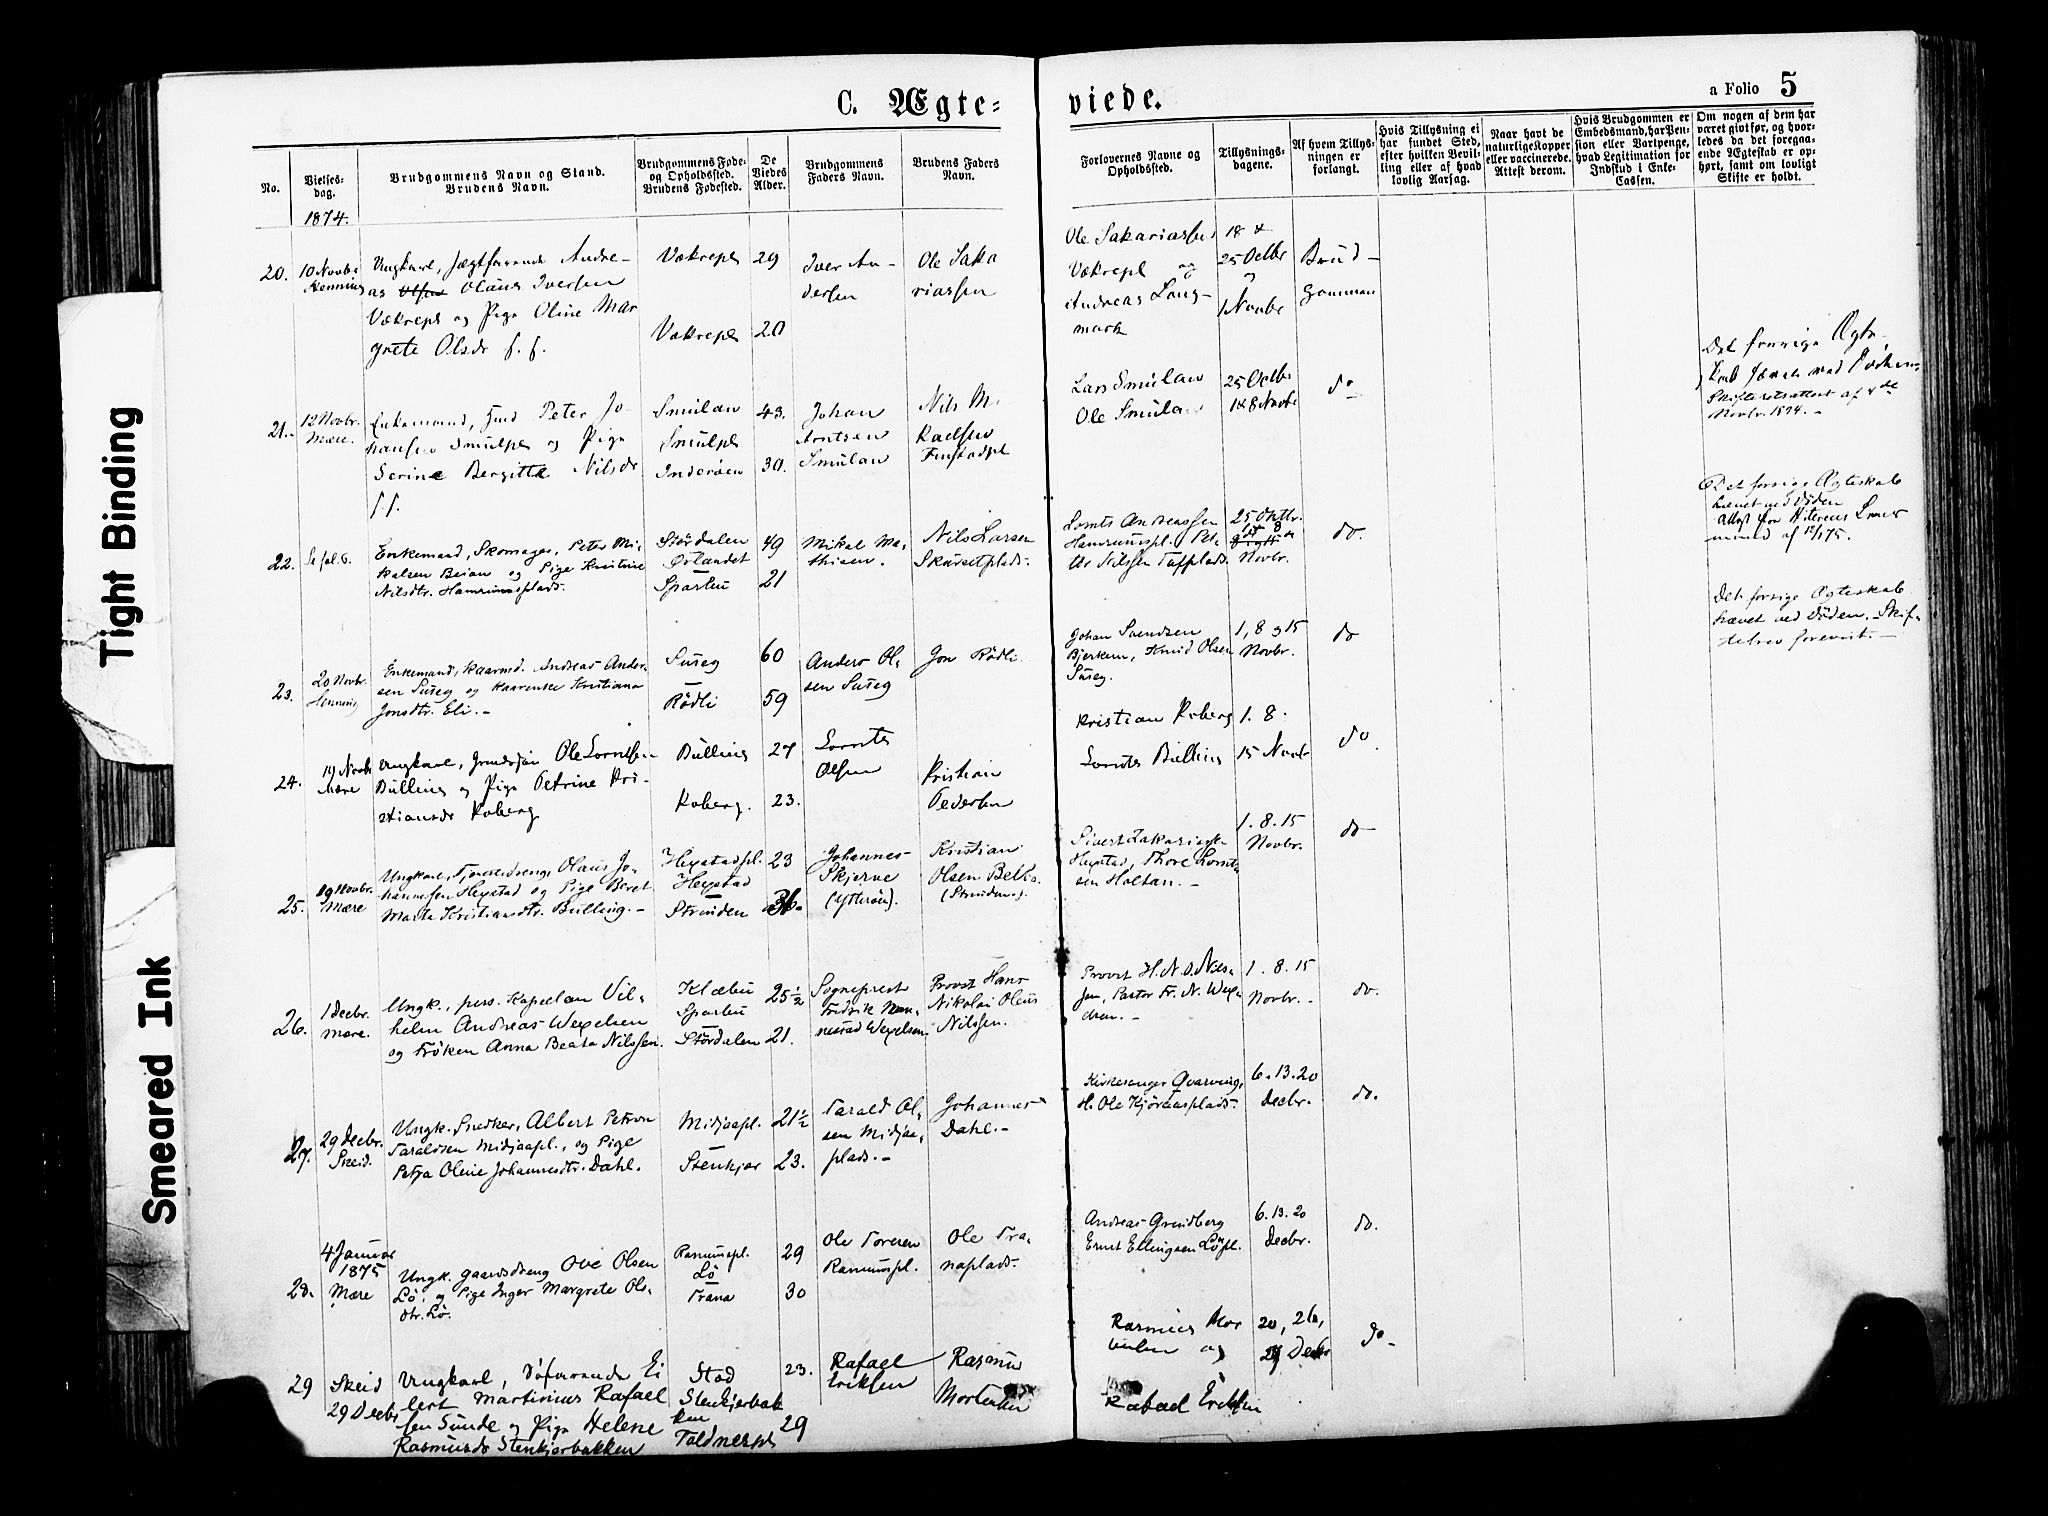 C. Ægte-
viede.
a Folio 5
No.
Vielses-
dag.
Brudgommens Navn og Stand.
Brudens Navn.
Brudgommens Føde-
og Opholdssted.
Brudens Fødested.
De
Viedes
Alder.
Brudgommens
Faders Navn.
Brudens Faders
Navn.
Forlovernes Navne og
Opholdssted.
Tillysnings-
dagene.
Af hvem Tillys-
ningen er
forlangt.
Hvis Tillysning ei
har fundet Sted,
efter hvilken Bevil-
ling eller af hvad
lovlig Aarsag.
Naar havt de
naturlige Kopper
eller vaccinerede.
Attest derom.
Hvis Brudgommen er
Embedsmand, har Pen-
sion eller Vartpenge,
hvad Legitimation for
Indskud i Enke-
Cassen.
Om nogen af dem har
været givt før, og hvor-
ledes da det foregaa-
ende Ægteskab er op-
hørt, samt om lovligt
Skifte er holdt.
1874.
20.
10 Novbr
Henning
Ungkarl, Jægtfarende Andre-
as Olsen Olaus Iversen
Vækrepl og Pige Oline Mar
grete Olsdr f. f.
Vækrepl
Vækrepl
29
20
Iver An-
dersen
Ole Saka
riassen
Ole Sakariassen
Vækrepl og
Andreas Lang-
mark
18 &
25 Octbr
og
1 Novbr
Brud-
gommen
21.
12 Novbr.
Mære.
Enkemand, Hmd Peter Jo-
hansen Smulpl og Pige
Serine Bergitte Nilsdr
f. f.
Smulan
Smulpl
Inderøen
43.
30.
Johan
Arntsen
Smulan
Nils M.
Finstadpl
Lars Smulan
Ole Smulan
25 Octbr
1 & 8 Novbr
do
Det forrige Ægte-
skab hævet ved Døden
Skifteretsattest af 4de
Novbr. 1874. -
22.
Enkemand, Skomager, Peter Mi-
kalsen Beian og Pige Kristine
Nilsdtr. Hamrumsplads.
Størdalen
Ørlandet
Sparbu
49
21
Mikal Ma-
thisen.
Nils Larsen
Lornts Andreassen
Hamrumspl. Pet-
ter Nilssen Tuftplads.
25 Oktbr.
Novbr.
do.
Det forrige Ægteskab
hævet ved Døden
23.
20 Novbr.
Henning
Enkemand, Kaarmd. Andreas Ander-
sen Suseg og Kaarenke Kristiana
Jonsdtr. Eli. -
Suseg
Rødli
60
59
Anders Ol-
sen Suseg
Jon Rødli
Johan Svendsen
Bjerkem, Knud Olsen
Suseg.
1, 8 og 15
Novbr.
do
Det forrige Ægteskab
hævet ved Døden. Skif-
tebrev forevist. -
24.
19 Novbr
Mære
Ungkarl, Grundejer Ole Lorntsen
Bulling og Pige Petrine Kri-
stiansdr Koberg
Bulling
Koberg.
27
23.
Lornts
Olsen
Kristian
Pedersen
Kristian Koberg
Lornts Bulling
1. 8.
15 Novbr
do
25.
19 Novbr.
Mære
Ungkarl, Tjenestdreng, Olaus Jo-
hannesen Heystad og Pige Beret
Marta Kristiansdtr. Bulling. -
Heystadpl.
Heystad
Strinden
23
36.
Johannes
Skjerve
(Ytterøen).
Kristian
Olsen
(Strinden.).
Sivert Zakariasen
Heystad, Thore Lornt-
sen Holtan. -
1. 8. 15
Novbr.
do
26.
1 Decbr.
Mære.
Ungk., pers. Kapellan Vil-
helm Andreas Wexelsen
og Frøken Anna Beata Nilssen.
Klæbu
Sparbu
Størdalen
25 1/2
21.
Sogneprest
Fredrik Man-
nestad Wexelsen
Provst Hans
Nikolai Oleus
Nilssen.
Provst H. N. O. Nils-
sen, Pastor Fr. N. Wexe-
1. 8. 15
Novbr. -
do.
27.
29 Decbr.
Skeid.
Ungk. Snedker, Albert Petron
Taraldsen Midjaapl., og Pige
Petra Oline Johannesdtr. Dahl.
Midjaapl.
Stenkjær
21 1/2
23.
Tarald Ol-
sen Midjaa-
plads. -
Johannes
Dahl. -
Kirkesanger Qvarving,
H. Ole Kjøraasplads.
6. 13. 20
Decbr.
do.
28.
4 Januar
1875
Mære
Ungk. Gaardsdreng Ove Olsen
Lø, og Pige Inger Margrete Ols-
dtr. Lø.
Ramumspl.
Lø
Trana
29
30
Ole Toresen
Ramumspl.
Ole Tra-
naplads.
Andreas Grundberg
Ernst Ellingsen Løpl.
6. 13. 20
Decbr.
do.
29
Skeid
29 Decbr
Ungkarl, Søfarende Ei
lert Martinius Rafael
sen Sunde og Pige Helene
Rasmusdr Stenkjerbakken
Stod
Stenkjerbak
ken
Foldnespl
23.
29
Rafael
Eriksen
Rasmus
Mortensen
Rasmus Mor
tensen og
Rafael Eriksen
20, 26,
27 Decbr
do
Tight Binding
Smeared Ink